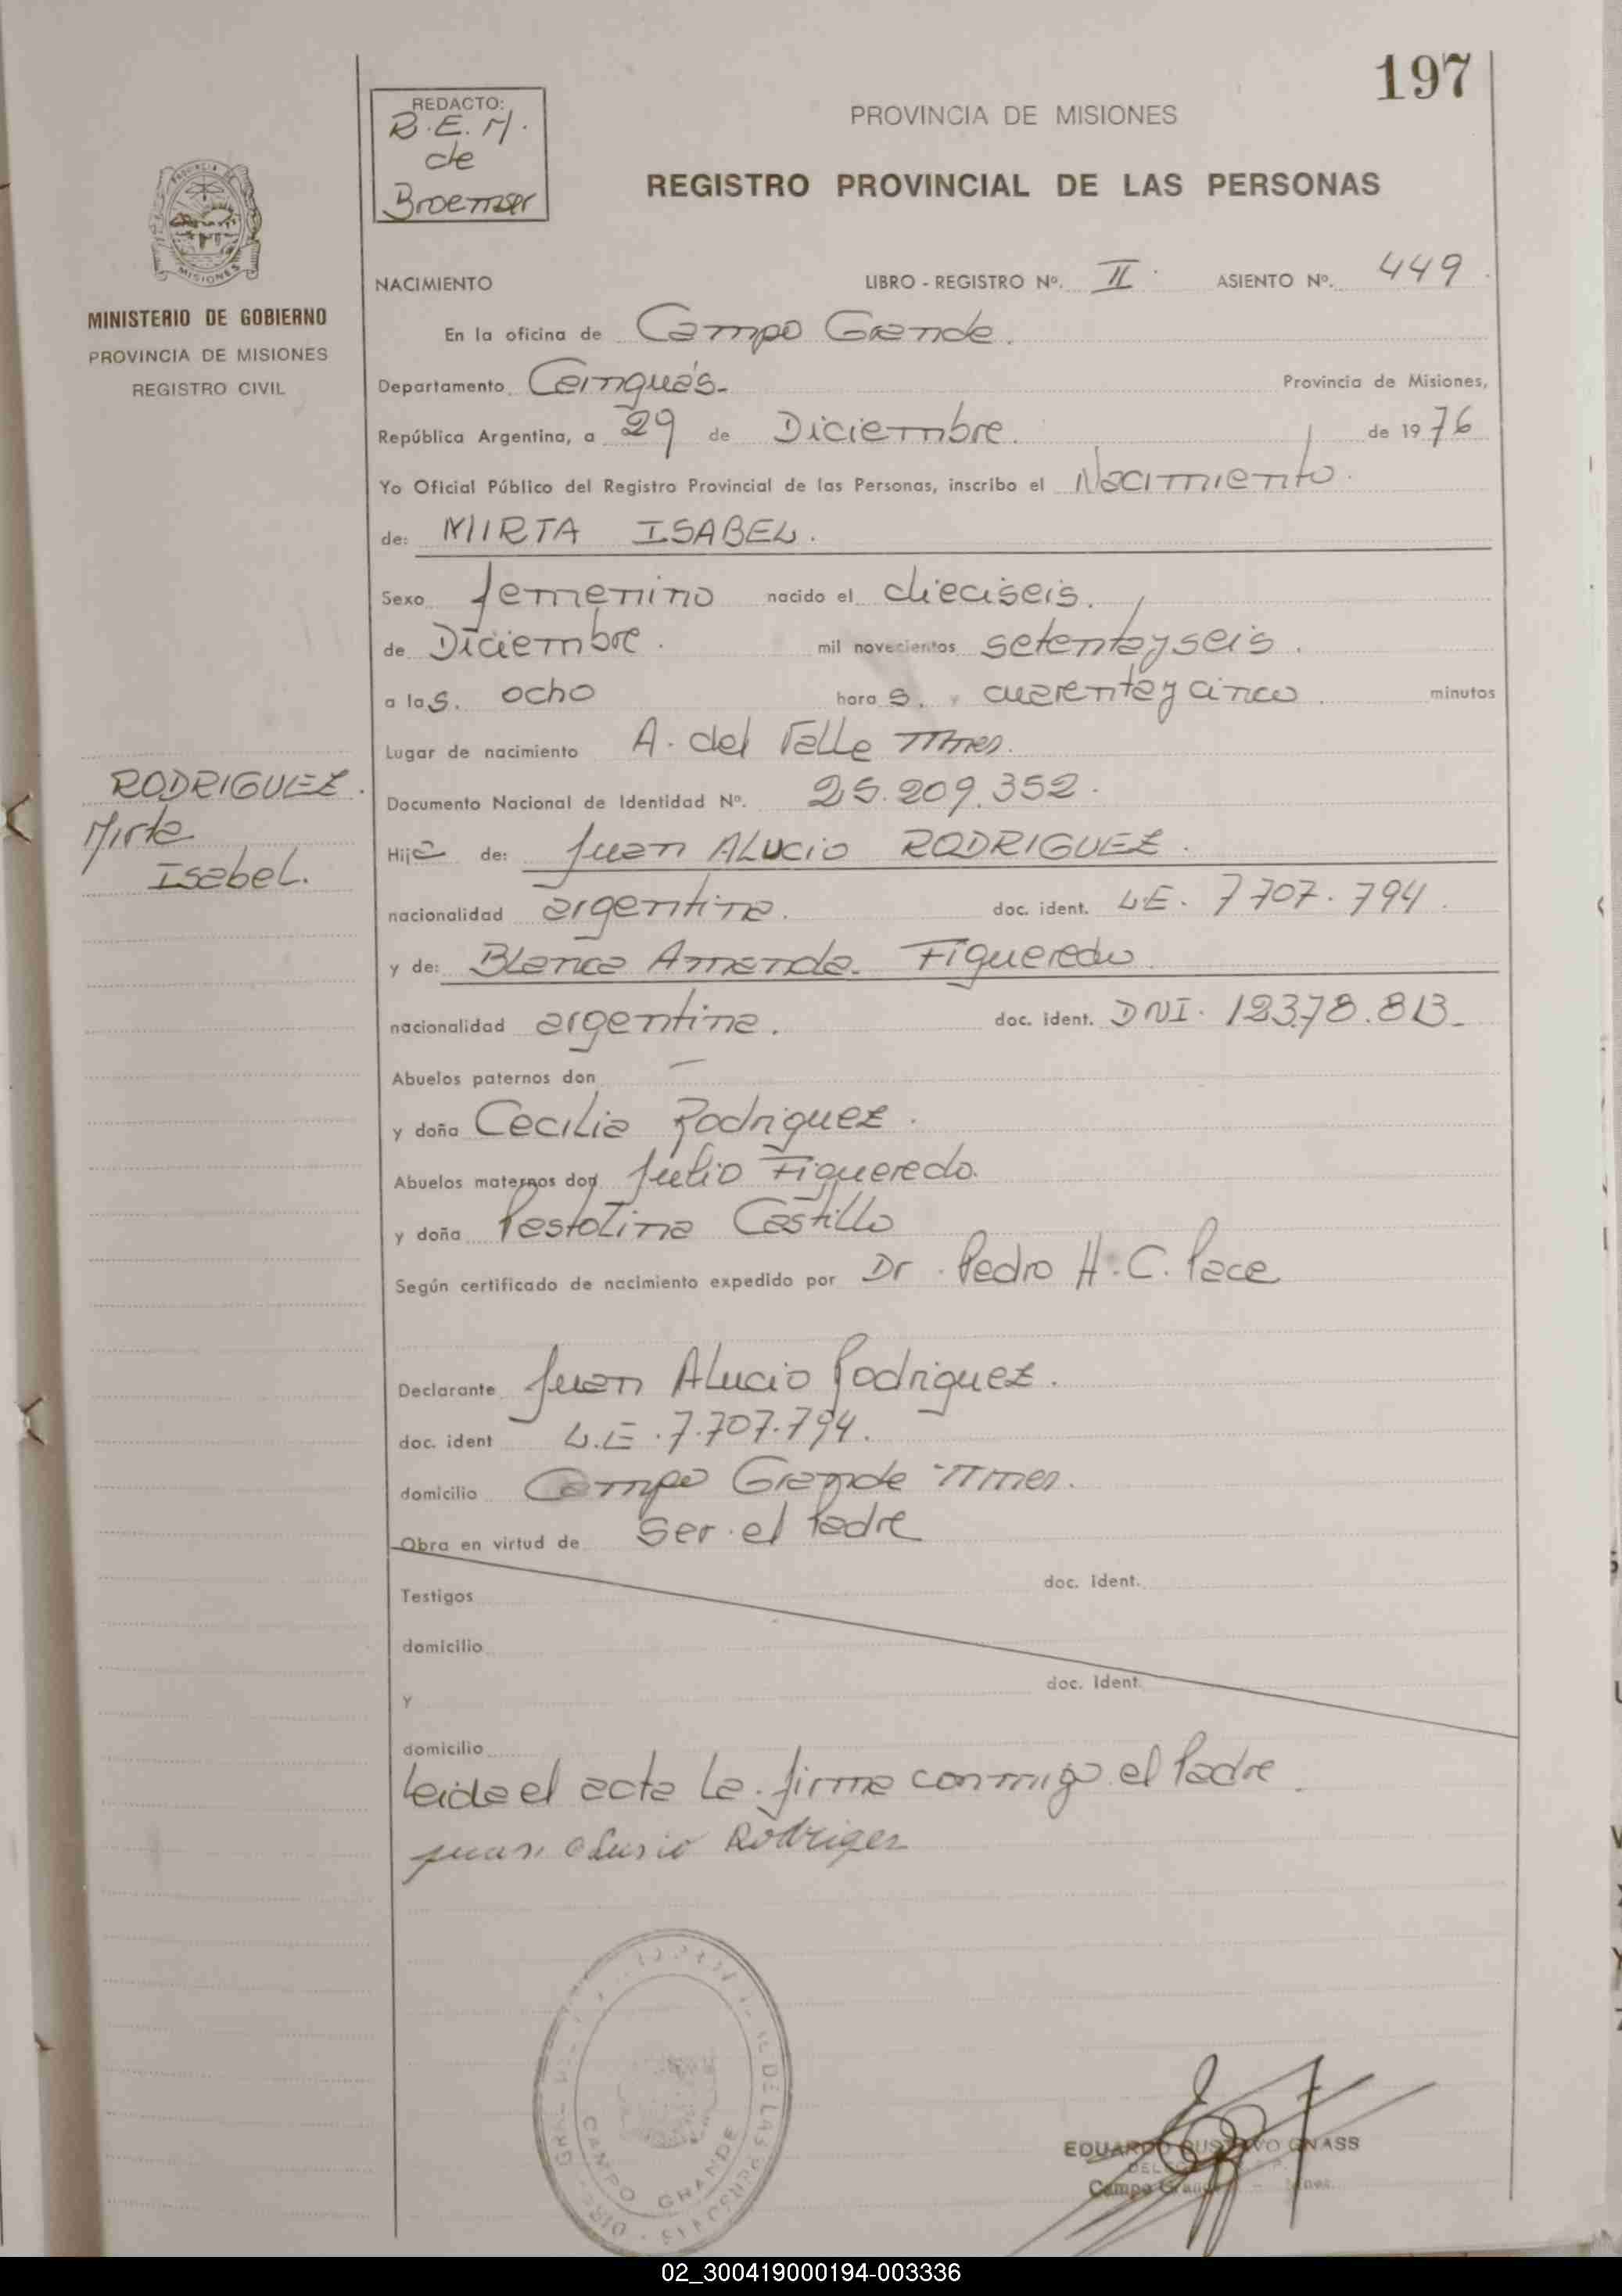 197
REDACTO:
R.E.M.
de
Broemser
PROVINCIA DE MISIONES
REGISTRO PROVINCIAL DE LAS PERSONAS
MISIONES
MINISTERIO DE GOBIERNO
PROVINCIA DE MISIONES
REGISTRO CIVIL
NACIMIENTO LIBRO - REGISTRO Nº. II. ASIENTO Nº. 449.
En la oficina de Campo Grande.
Departamento Cainguás. Provincia de Misiones,
República Argentina, a 29 de Diciembre. de 1976
Yo Oficial Público del Registro Provincial de las Personas, inscribo el Nacimiento.
de: MIRTA ISABEL.
Sexo femenino nacido el dieciseis.
de Diciembre. mil novecientos setenta y seis.
a las. ocho horas. cuarenta y cinco minutos
Lugar de nacimiento A. del Valle Mnes.
RODRIGUEZ.
Mirta
Isabel.
Documento Nacional de Identidad Nº. 25.209.352.
Hija de: Juan ALUCIO RODRIGUEZ.
nacionalidad argentina. doc. ident. LE. 7707.794.
y de: Blanca Amanda Figueredo
nacionalidad argentina. doc. ident. DNI. 12378.813
Abuelos paternos don —
y doña Cecilia Rodriguez.
Abuelos maternos don Julio Figueredo.
y doña Pastolina Castillo
Según certificado de nacimiento expedido por Dr. Pedro H. C. Pace
Declarante Juan Alucio Rodriguez.
doc. ident L.E. 7.707.794.
domicilio Campo Grande Mnes.
Obra en virtud de Ser el Padre
doc. ident.
Testigos
domicilio
doc. ident.
Y
domicilio
Leida el acta la firma conmigo el Padre.
juan alusio Rodriges
DE LAS PERSONAS
CAMPO GRANDE
EDUARDO GUSTAVO GNASS
Campo Grande - Mnes.
02_300419000194-003336